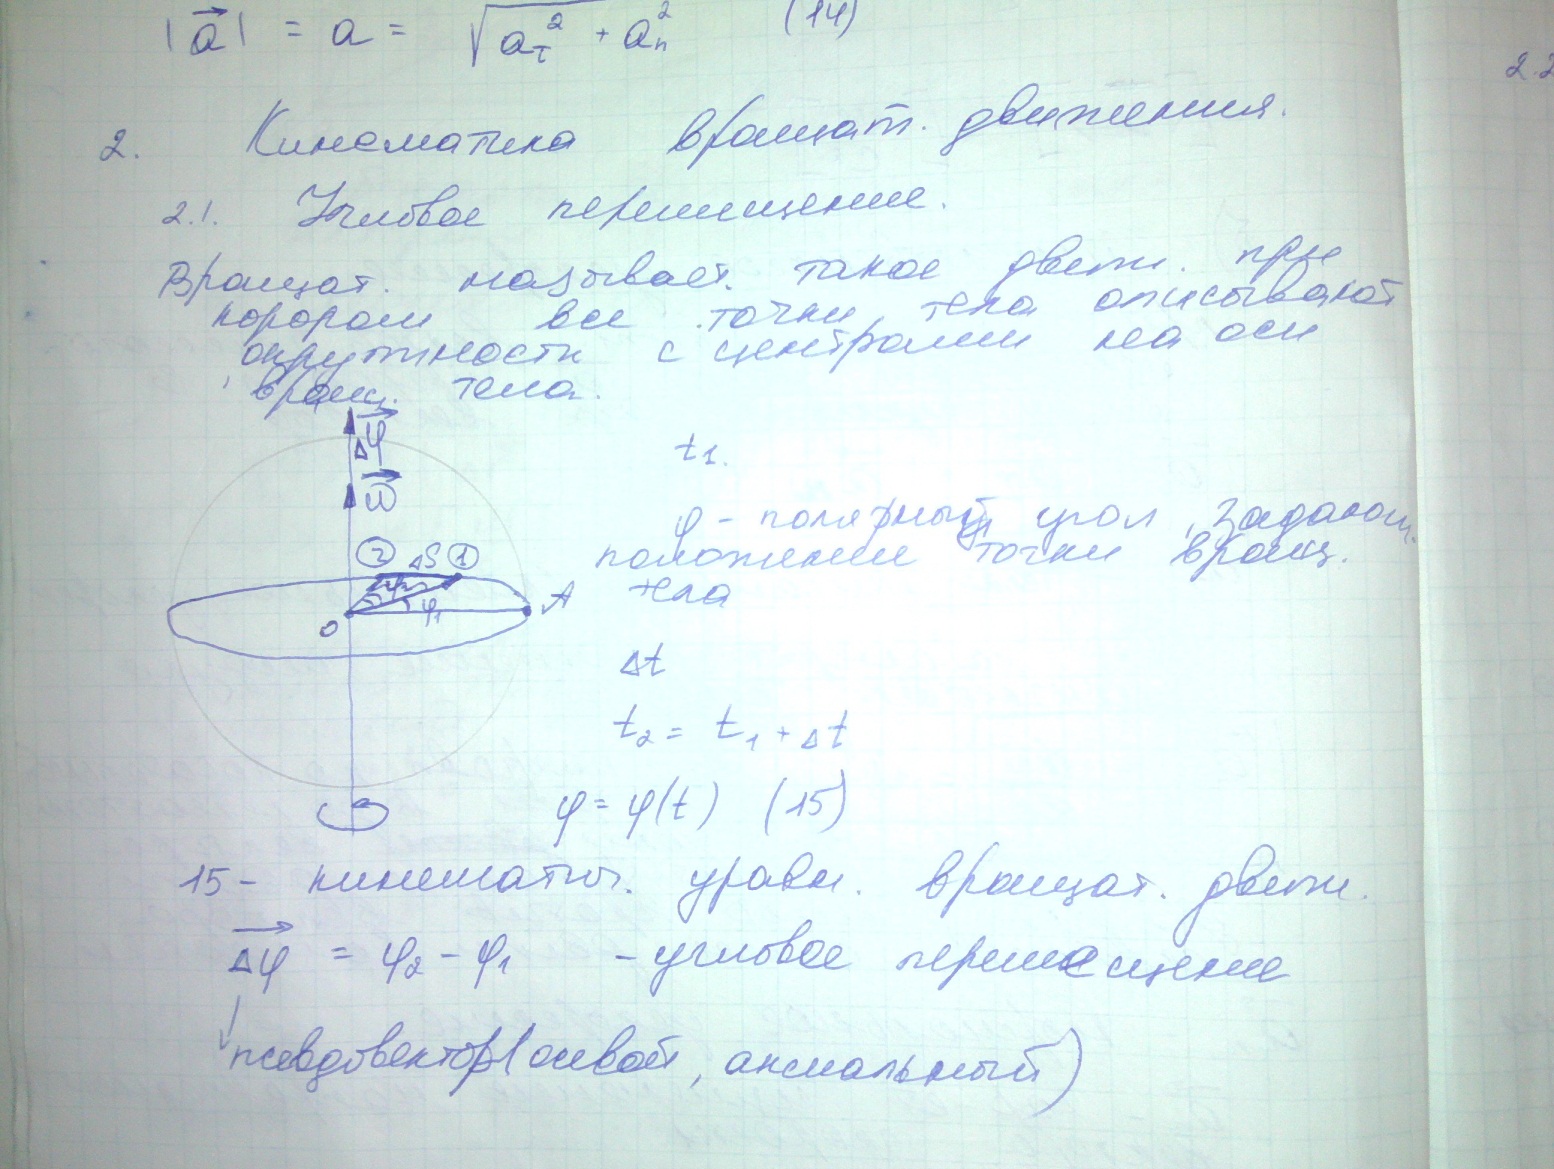 |a⃗| = a = √(aτ² + aₙ²) (14)
2.2
2. Кинематика вращат. движения.
2.1. Угловое перемищение.
Вращат. называет. такое движ. при
корором все точки тела описывают
окружности с центрами на оси
вращ. тела.
Δφ⃗
ω⃗
t₁.
φ - полярный угол, задающ.
положении точки вращ.
тела
② ΔS ①
φ₁
O
A
Δt
t₂ = t₁ + Δt
φ = φ(t) (15)
15 - кинематич. уравн. вращат. движ.
Δφ⃗ = φ₂ - φ₁ - угловое перемещение
псевдовектор (осевой, аксиальный)